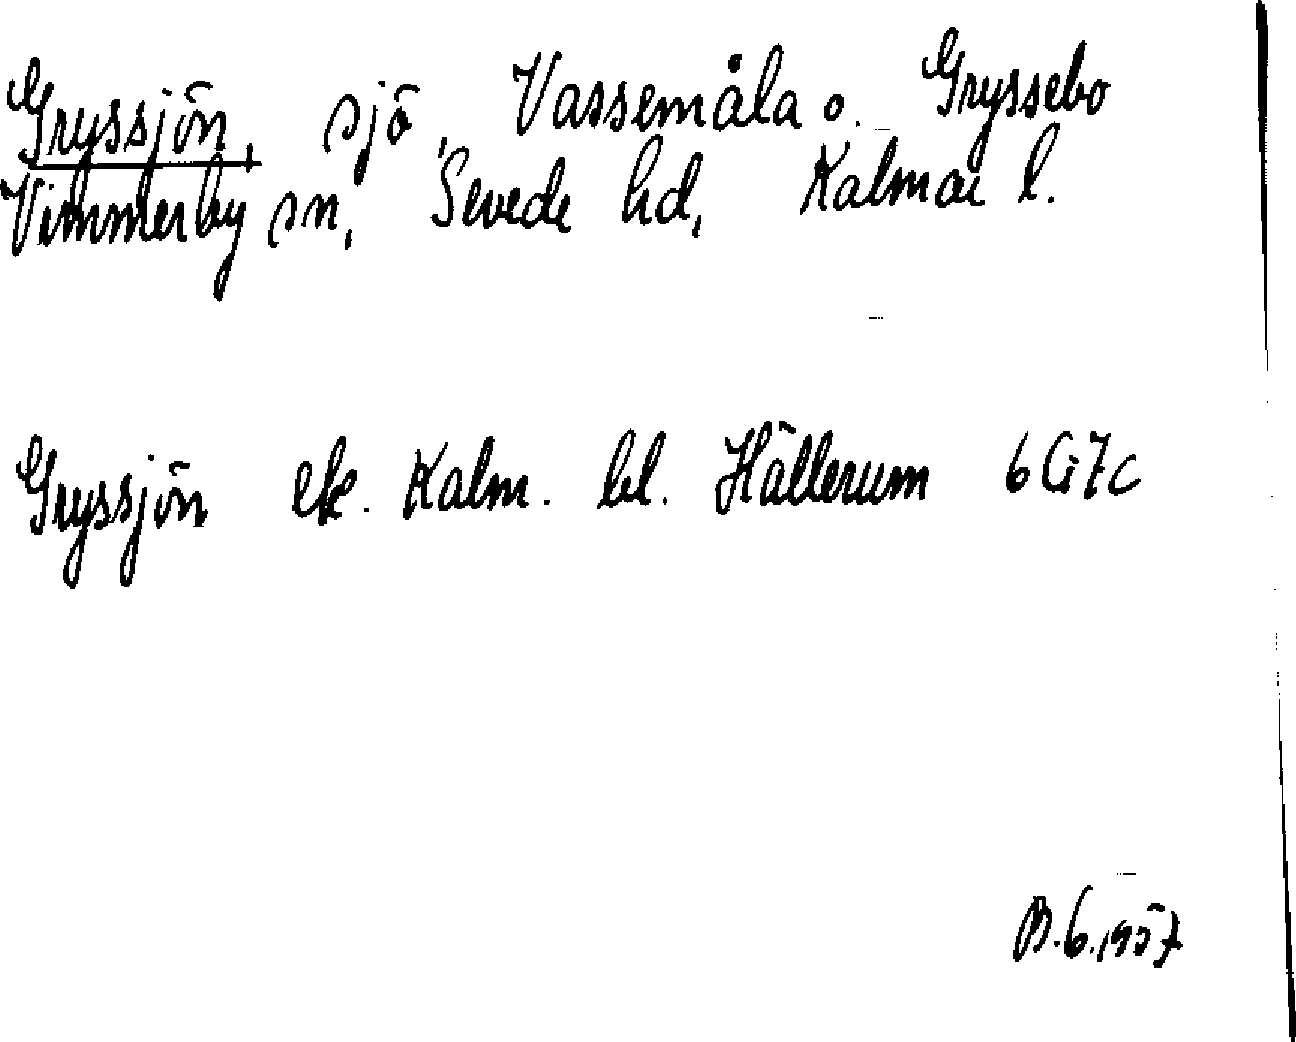 Gryssjön, sjö, Vassemåla o. Gryssebo
Vimmerby sn, Sevede hd, Kalmar l.
Gryssjön ek. Kalm. bl. Hällerum 6G7c
B.G. 1957